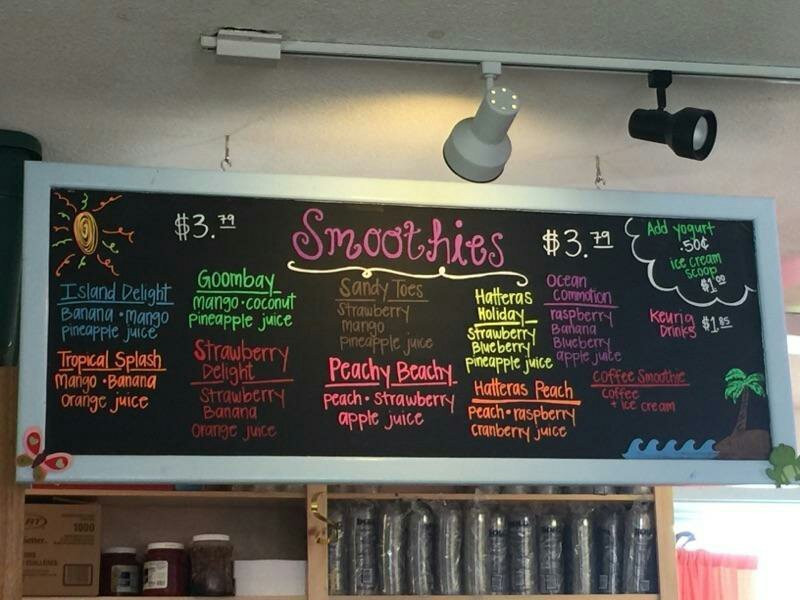 $3.79
Smoothies
$3.79
Add yogurt
.50¢
ice cream
scoop
$1.00
Keurig
Drinks
$1.85
Island Delight
Banana • mango
pineapple juice
Tropical Splash
Mango • Banana
orange juice
Goombay
mango • coconut
pineapple juice
Strawberry
Delight
Strawberry
Banana
orange juice
Sandy Toes
Strawberry
mango
pineapple juice
Peachy Beachy
peach • strawberry
apple juice
Hatteras
Holiday
Strawberry
Blueberry
pineapple juice
Hatteras Peach
peach • raspberry
cranberry juice
Ocean
Commotion
raspberry
Banana
Blueberry
apple juice
Coffee Smoothie
coffee
+ ice cream
1000